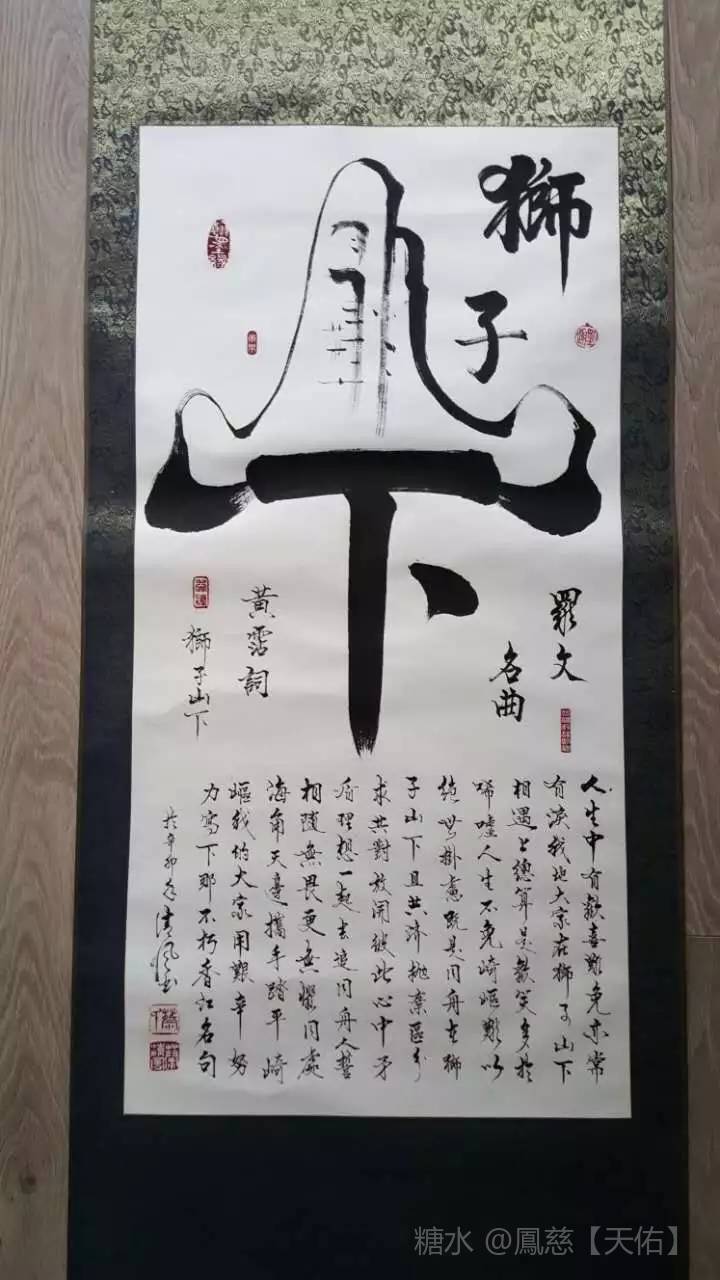 獅子
山下
羅文
名曲
黃霑詞
獅子山下
人生中有歡喜難免亦常
有淚我地大家在獅子山下
相遇上總算是歡笑多於
唏噓人生不免崎嶇難以
絕無掛慮既是同舟在獅
子山下且共濟拋棄區分
求共對放開彼此心中矛
盾理想一起去追同舟人誓
相隨無畏更無懼同處
海角天邊攜手踏平崎
嶇我的大家用艱辛努
力寫下那不朽香江名句
於辛卯年清
糖水 @鳳慈【天佑】